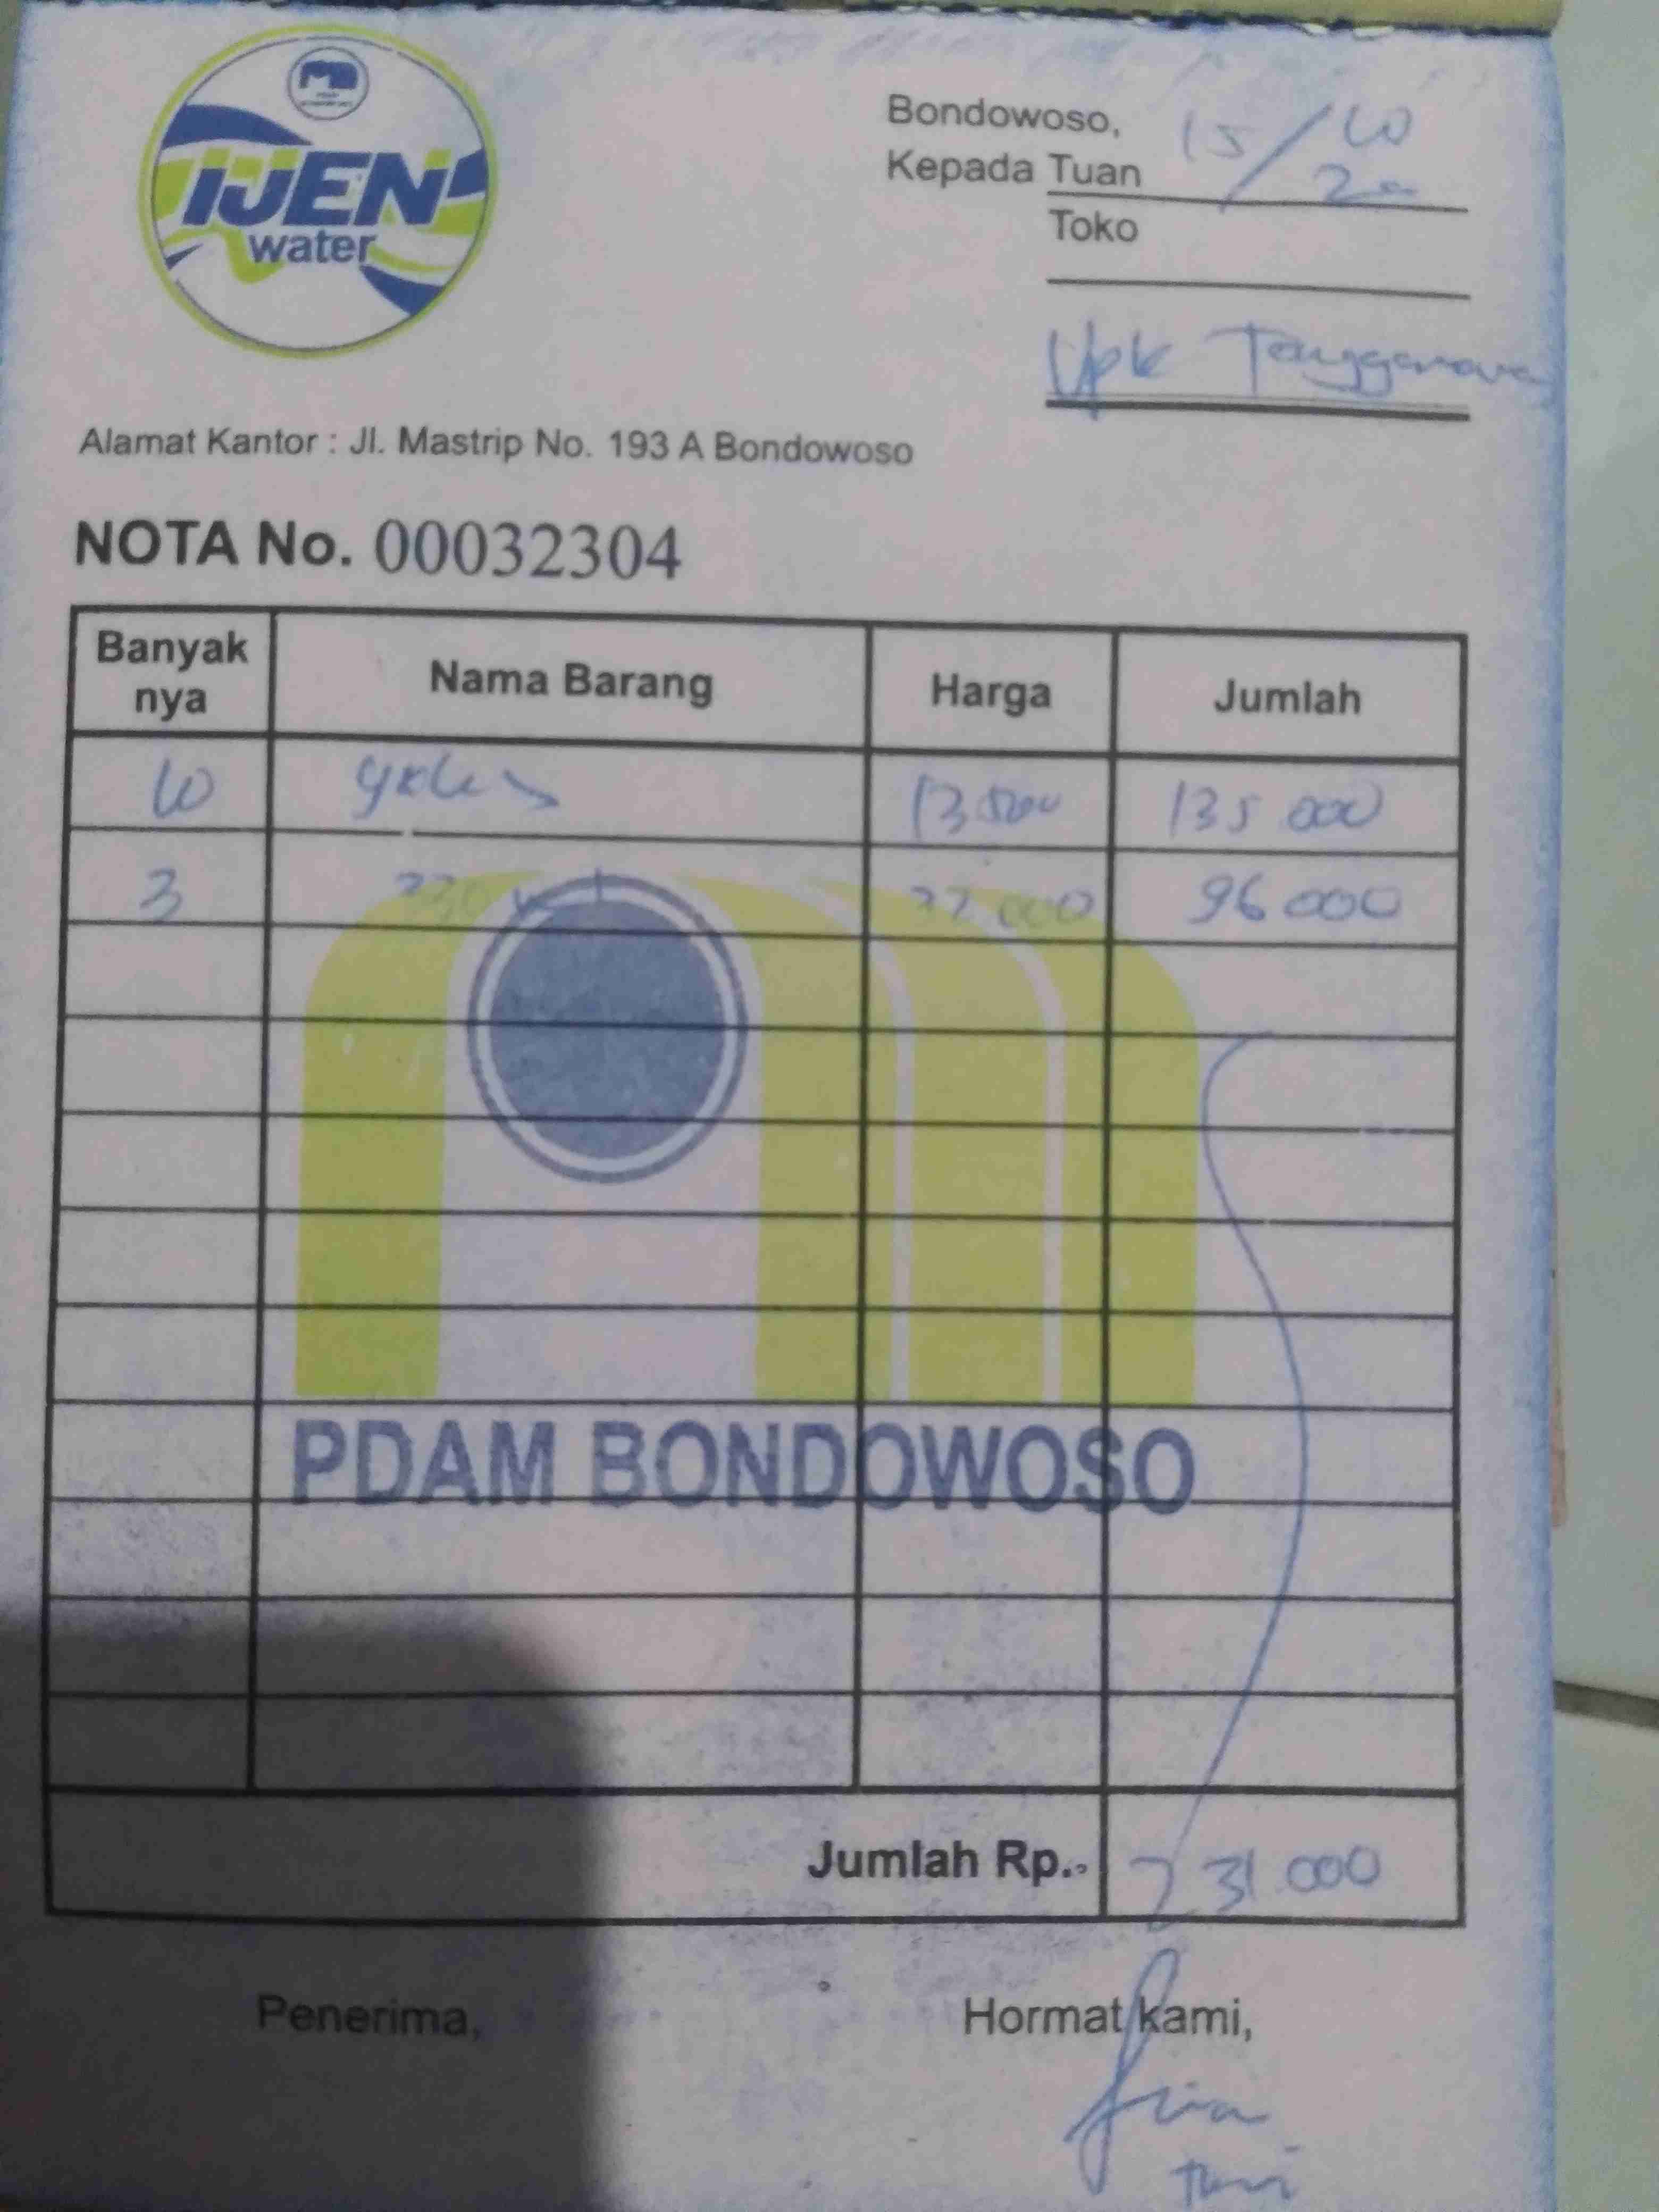 IJEN
water
Bondowoso, 15/10
20
Kepada Tuan
Toko
Upk Tenggarang
Alamat Kantor : Jl. Mastrip No. 193 A Bondowoso
NOTA No. 00032304
Banyak nya Nama Barang Harga Jumlah
10 galon 13.500 135 000
3 330 ml 32.000 96 000
PDAM BONDOWOSO
Jumlah Rp.- 231.000
Penerima, Hormat kami,